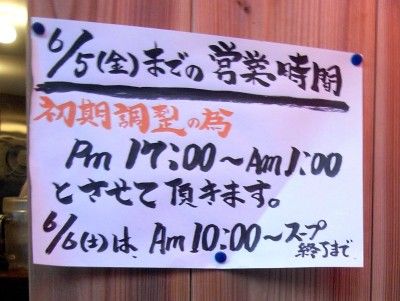 6/5(金)までの営業時間
初期調整の為
Pm 17:00〜Am1:00
とさせて頂きます。
6/6(土)は、Am 10:00〜スープ
終了まで